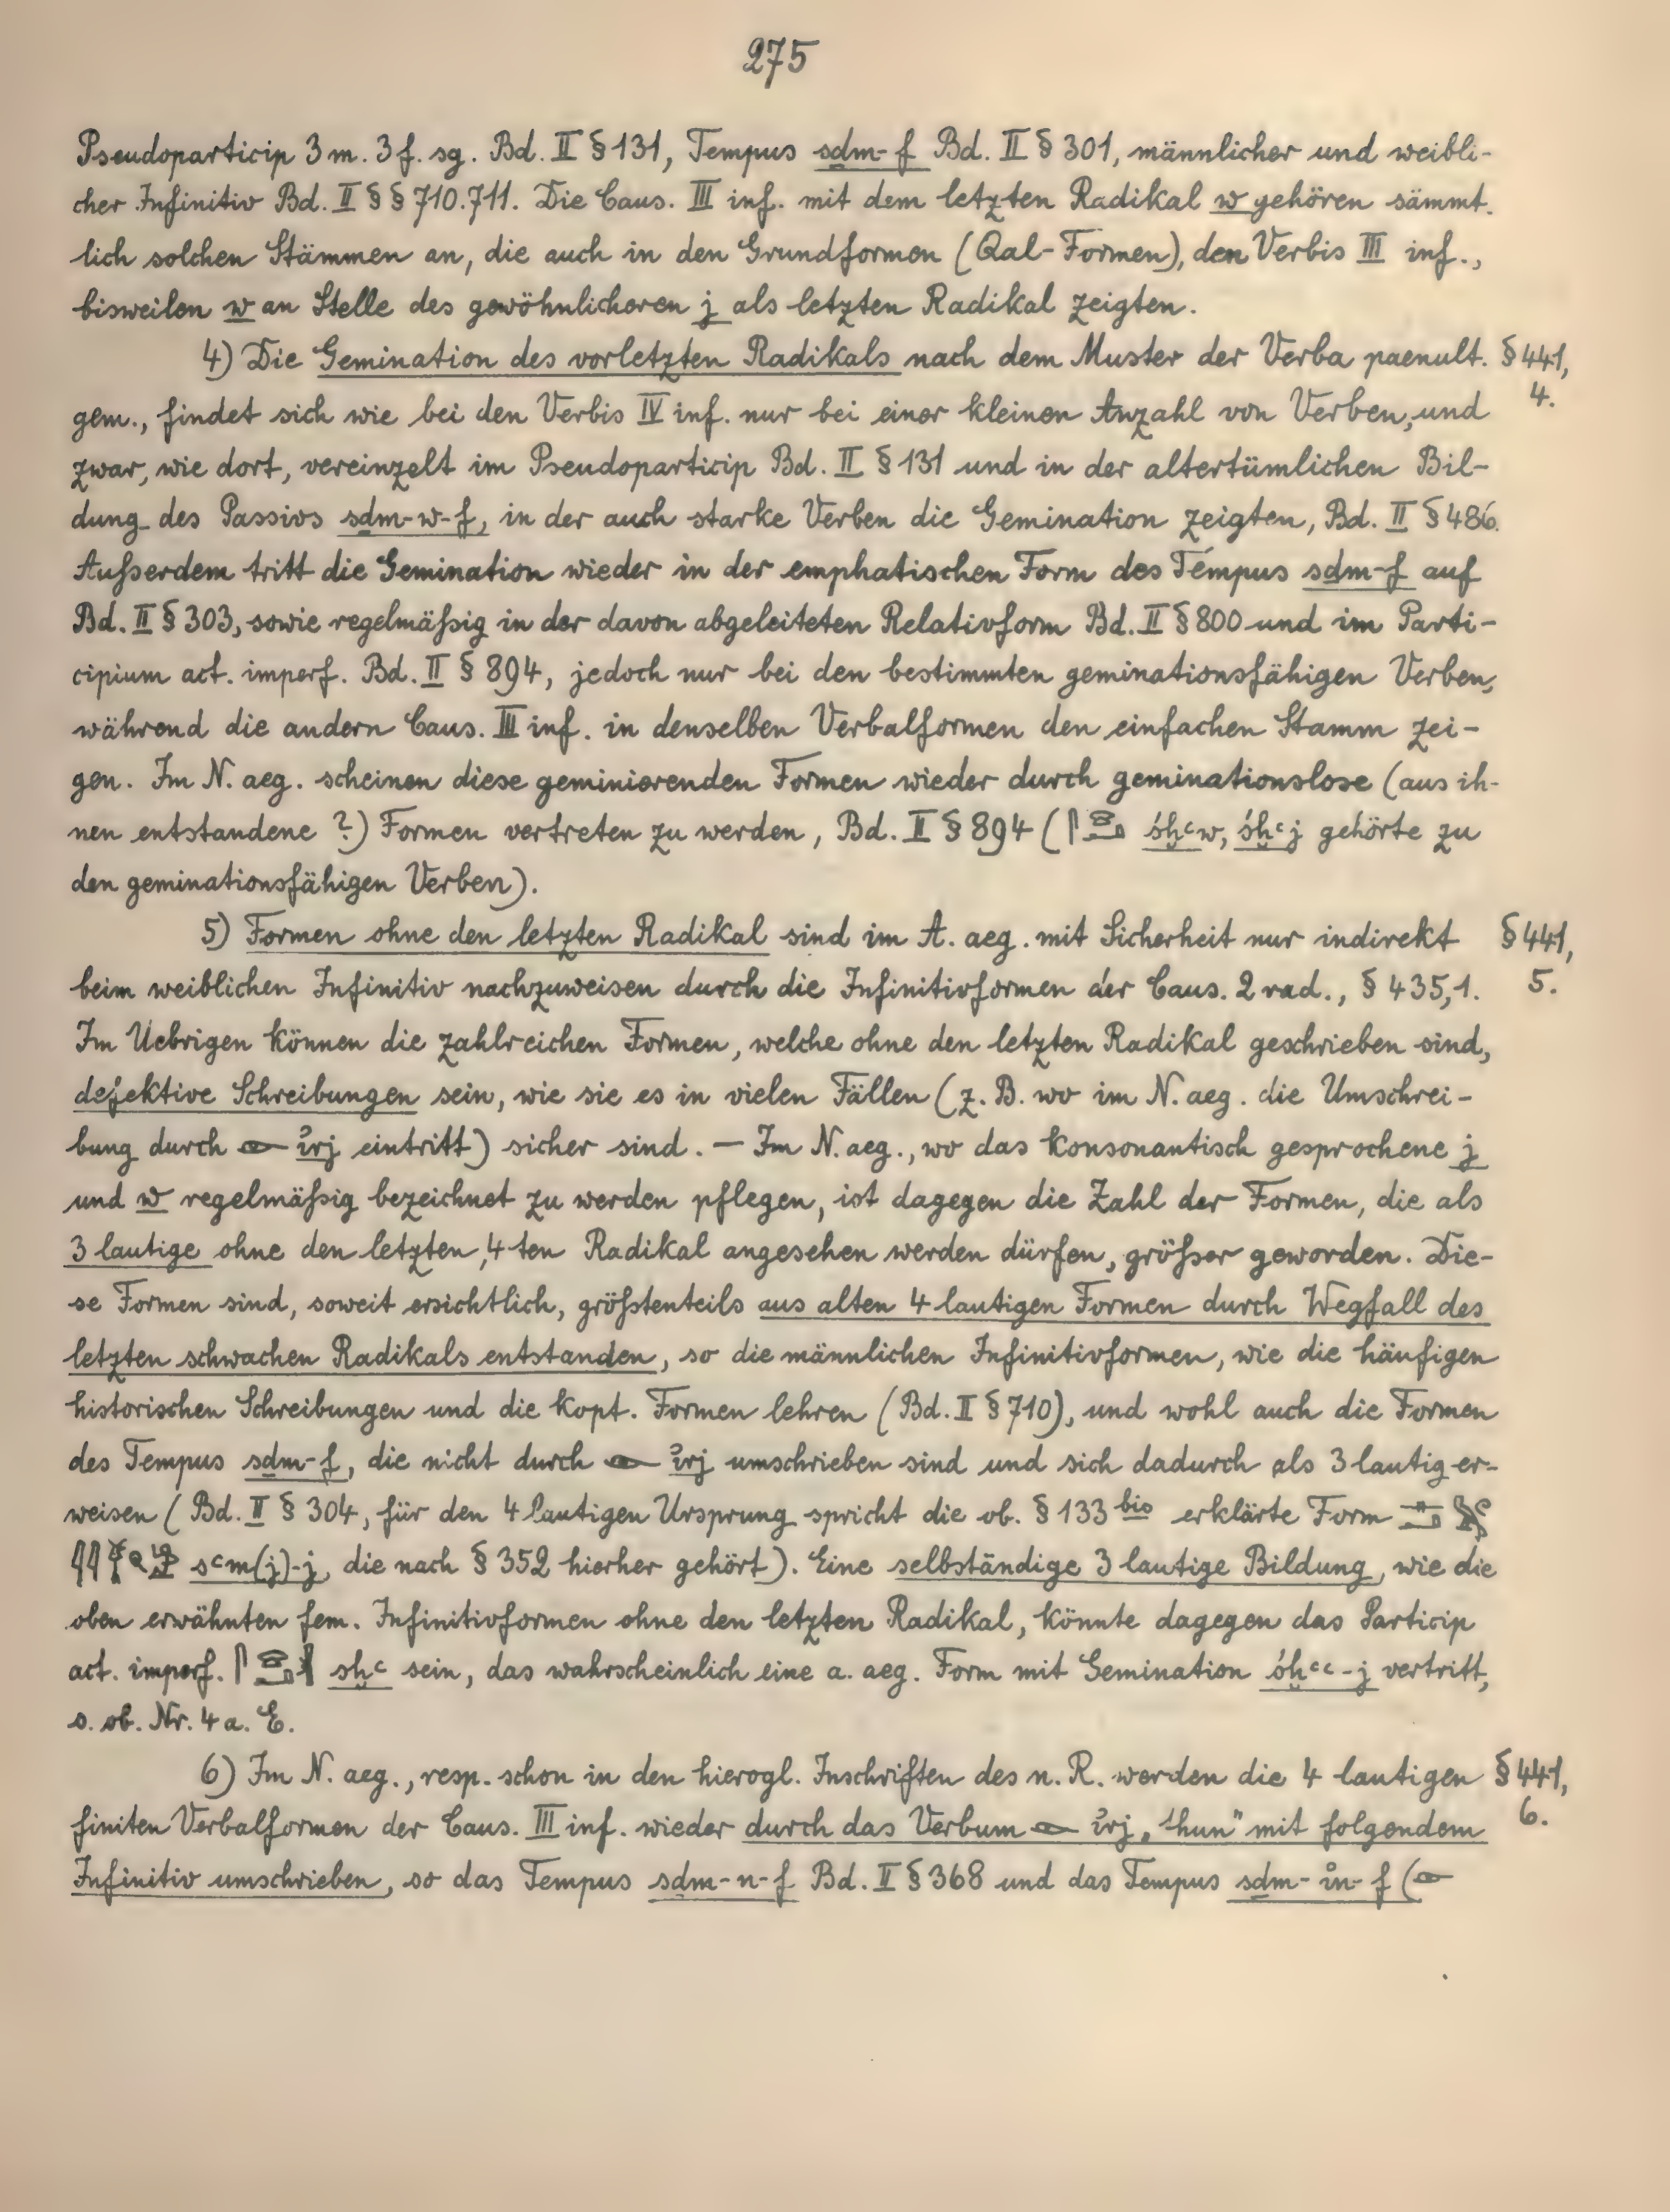 275
Pseudoparticip 3 m. 3 f. sg. Bd. II § 131, Tempus sḏm-f Bd. II § 301, männlicher und weibli-
cher Infinitiv Bd. II § § 710.711. Die Caus. III inf. mit dem letzten Radikal w gehören sämmt.
lich solchen Stämmen an, die auch in den Grundformen (Qal-Formen), den Verbis III inf.,
bisweilen w an Stelle des gewöhnlicheren j als letzten Radikal zeigten.
4) Die Gemination des vorletzten Radikals nach dem Muster der Verba paenult. § 441,
gem., findet sich wie bei den Verbis IV inf. nur bei einer kleinen Anzahl von Verben, und 4.
zwar, wie dort, vereinzelt im Pseudoparticip Bd. II § 131 und in der altertümlichen Bil-
dung des Passivs sḏm-w-f, in der auch starke Verben die Gemination zeigten, Bd. II § 486.
Außerdem tritt die Gemination wieder in der emphatischen Form des Tempus sḏm-f auf
Bd. II § 303, sowie regelmäßig in der davon abgeleiteten Relativform Bd. II § 800 und im Parti-
cipium act. imperf. Bd. II § 894, jedoch nur bei den bestimmten geminationsfähigen Verben,
während die andern Caus. III inf. in denselben Verbalformen den einfachen Stamm zei-
gen. Im N. aeg. scheinen diese geminierenden Formen wieder durch geminationslose (aus ih-
nen entstandene ?) Formen vertreten zu werden, Bd. II § 894 ( śḫꜥw, śḫꜥj gehörte zu
den geminationsfähigen Verben).
5) Formen ohne den letzten Radikal sind im A. aeg. mit Sicherheit nur indirekt § 441,
beim weiblichen Infinitiv nachzuweisen durch die Infinitivformen der Caus. 2 rad., § 435,1. 5.
Im Uebrigen können die zahlreichen Formen, welche ohne den letzten Radikal geschrieben sind,
defektive Schreibungen sein, wie sie es in vielen Fällen (z. B. wo im N. aeg. die Umschrei-
bung durch 𓁹 ı͗rj eintritt) sicher sind. — Im N. aeg., wo das konsonantisch gesprochene j
und w regelmäßig bezeichnet zu werden pflegen, ist dagegen die Zahl der Formen, die als
3 lautige ohne den letzten, 4 ten Radikal angesehen werden dürfen, größer geworden. Die-
se Formen sind, soweit ersichtlich, größtenteils aus alten 4 lautigen Formen durch Wegfall des
letzten schwachen Radikals entstanden, so die männlichen Infinitivformen, wie die häufigen
historischen Schreibungen und die kopt. Formen lehren (Bd. II § 710), und wohl auch die Formen
des Tempus sḏm-f, die nicht durch 𓁹 ı͗rj umschrieben sind und sich dadurch als 3 lautig er-
weisen (Bd. II § 304, für den 4 lautigen Ursprung spricht die ob. § 133 bis erklärte Form
sꜥm(j)-j, die nach § 352 hierher gehört). Eine selbständige 3 lautige Bildung, wie die
oben erwähnten fem. Infinitivformen ohne den letzten Radikal, könnte dagegen das Particip
act. imperf. sḫꜥ sein, das wahrscheinlich eine a. aeg. Form mit Gemination śḫꜥꜥ-j vertritt,
s. ob. Nr. 4 a. E.
6) Im N. aeg., resp. schon in den hierogl. Inschriften des n. R. werden die 4 lautigen § 441,
finiten Verbalformen der Caus. III inf. wieder durch das Verbum 𓁹 ı͗rj „thun" mit folgendem 6.
Infinitiv umschrieben, so das Tempus sḏm-n-f Bd. II § 368 und das Tempus sḏm-ı͗n-f (𓁹